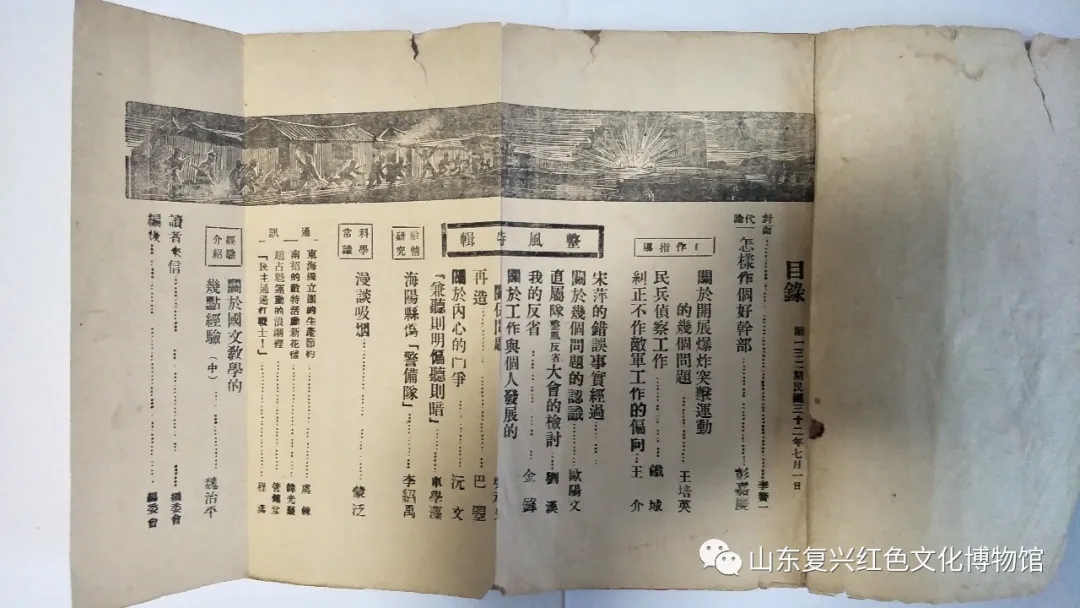 目錄
第一三二期民國三十二年七月一日
封面……李善一
代論
怎樣作個好幹部……彭嘉慶
工作指導
關於開展爆炸突擊運動
的幾個問題……王培英
民兵偵察工作……鐵城
糾正不作敵軍工作的偏向……王介
整風專輯
宋萍的錯誤事實經過……
關於幾個問題的認識……歐陽文
直屬隊整風反省大會的檢討……劉漢
我的反省……金鋒
關於工作與個人發展的
關係問題
再造……巴
關於內心的鬥爭……沅文
『兼聽則明偏聽則暗』……車學藻
敵情研究
海陽縣僞「警備隊」……李紹禹
科學常識
漫談吸烟……蒙泛
通訊
東海獨立團的生產節約
南招的敵特活動新花樣
趙占魁運動的浪潮裡
「民主通過打戰士！」……程
經驗介紹
關於國文教學的
幾點經驗（中）……魏治平
讀者來信……編委會
編後……編委會
山东复兴红色文化博物馆